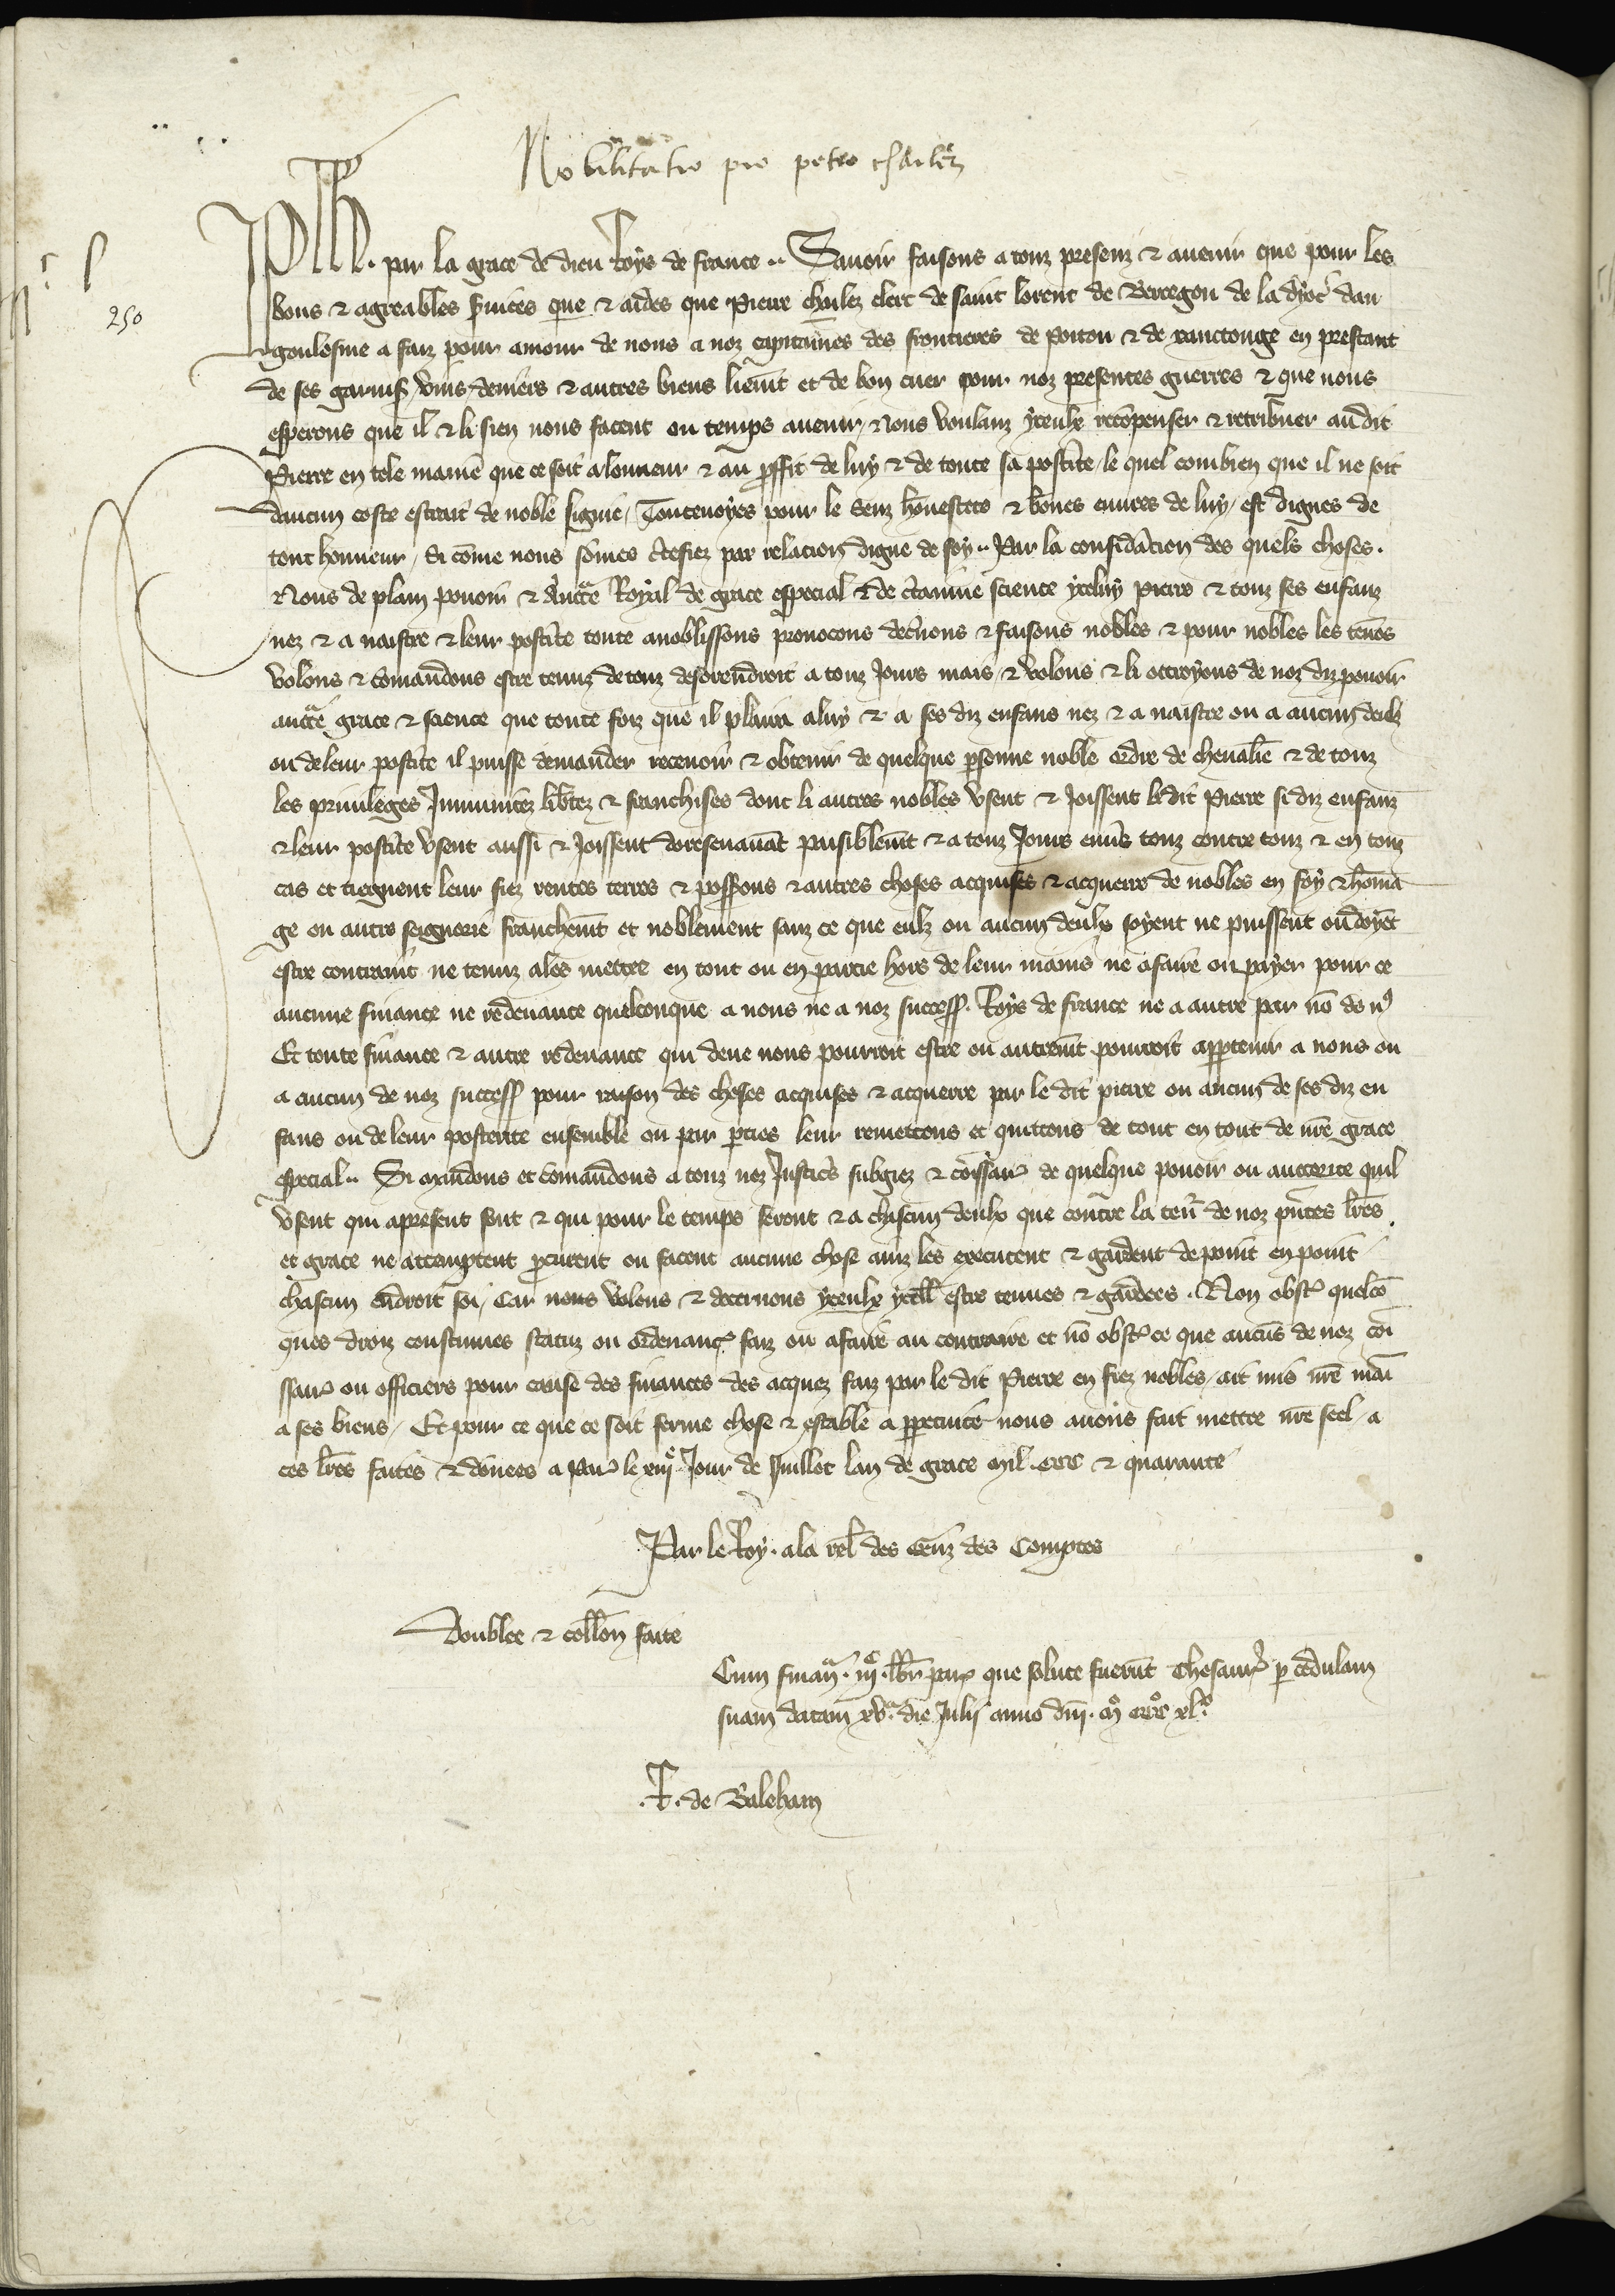 Nobilitatio pro petro charlez
Ph. par la grace de dieu Roys de france. Savoir faisons a touz presenz & avenir que pour les
250
bons & agreables svices que & aides que Pierre Charlez clerc de saint lorent de Bercegou de la dyoc dan
goulesme a faiz pour amour de nous a noz capitaines des frontieres de poitou & de xanctonge en prestant
de ses garnis vins deniers & autres biens liemt et de bon cuer pour noz presentes guerres & que nous
esperons que il & li sien nous facent ou temps avenir, Nous voulanz yceulx recompenser & retribuer audit
Pierre en tele maniē que ce soit a lonneur & au proffit de luy & de toute sa postite, le quel combien que il ne soit
daucun coste estrait de noble lignie, Toutevoyes pour le senz honestete & bones euvres de luy, est dignes de
tout honneur, si cōme nous sōmes ctefiez par relacion digne de foy. Par la consideracion des quels choses.
Nous de plain povoir & auctē Royal de grace especial & de ctainne science yceluy pierre & touz ses enfanz
nez & a naistre & leur postite toute anoblissons provocons decnons & faisons nobles & pour nobles les tenōs
volons & comandons estre tenuz de touz desorendroit a touz jours mais, & volons & li ottroyons de noz diz povoir
auctē grace & science que toute foiz que il plaira a luy & a ses diz enfans nez & a naistre ou a aucun deulz
ou de leur postite il puisse demander recevoir & obtenir de quelque psonne noble ordre de chevalie & de touz
les privileges Immunitez libtez & franchises dont li autres nobles usent & Joissent ledit Pierre si diz enfanz
& leur postite usent aussi & Joissent doresenavāt paisiblemt & a touz Jours envs touz contre touz & en touz
cas et tiegnent leur fiez rentes terres & possions & autres choses acquises & acquerre de nobles en foy & homā
ge ou autre seignorie franchemt et noblement sanz ce que eulz ou aucun deulx soyent ne puissent ou doyēt
estre contraint ne tenuz a les mettre en tout ou en partie hors de leur mains ne a faire ou payer pour ce
aucune finance ne redevance quelconque a nous ne a noz success. Roys de france ne a autre par nō de nō
Et toute finance & autre redevance qui deue nous pourroit estre ou autremt pourroit apptenir a nous ou
a aucun de noz success pour raison des choses acquises & acquerre par le dit pierre ou aucun de ses diz en
fans ou de leur posterite ensemble ou par pties leur remettons et quittons de tout en tout de nrē grace
especial. Si mandons et comandons a touz noz Justics subgiez & cōissans de quelque povoir ou auctorite quil
usent qui a present sont & qui pour le temps seront & a chascun deulx que contre la ten de noz pntes lrēs
et grace ne attemptent pcurent ou facent aucune chose ainz les executent & gardent de point en point
chascun endroit soi, Car nous volons & decernons yceulx ycell estre tenues & gardees. Non obst quelcō
ques droiz coustumes statuz ou ordenances faiz ou a faire au contraire et nō obst ce que aucūs de noz cōi
ssans ou officiers pour cause des finances des acquez faiz par le dit Pierre en fiez nobles, ait mis nrē mai
a ses biens, Et pour ce que ce soit ferme chose & estable a ppetuite nous avons fait mettre nrē seel, a
ces lrēs faites & donees a Par le xiiij Jour de Juillet lan de grace mil ccc & quarante
Par le Roy. a la rel des Genz des Comptes
Doublee & collon faite
Cum finan. iijc. libr par que solute fuerūt Thesaur p cedulam
suam datam xva die Julii anno dni. mo ccco xlo
.T. de Baleham